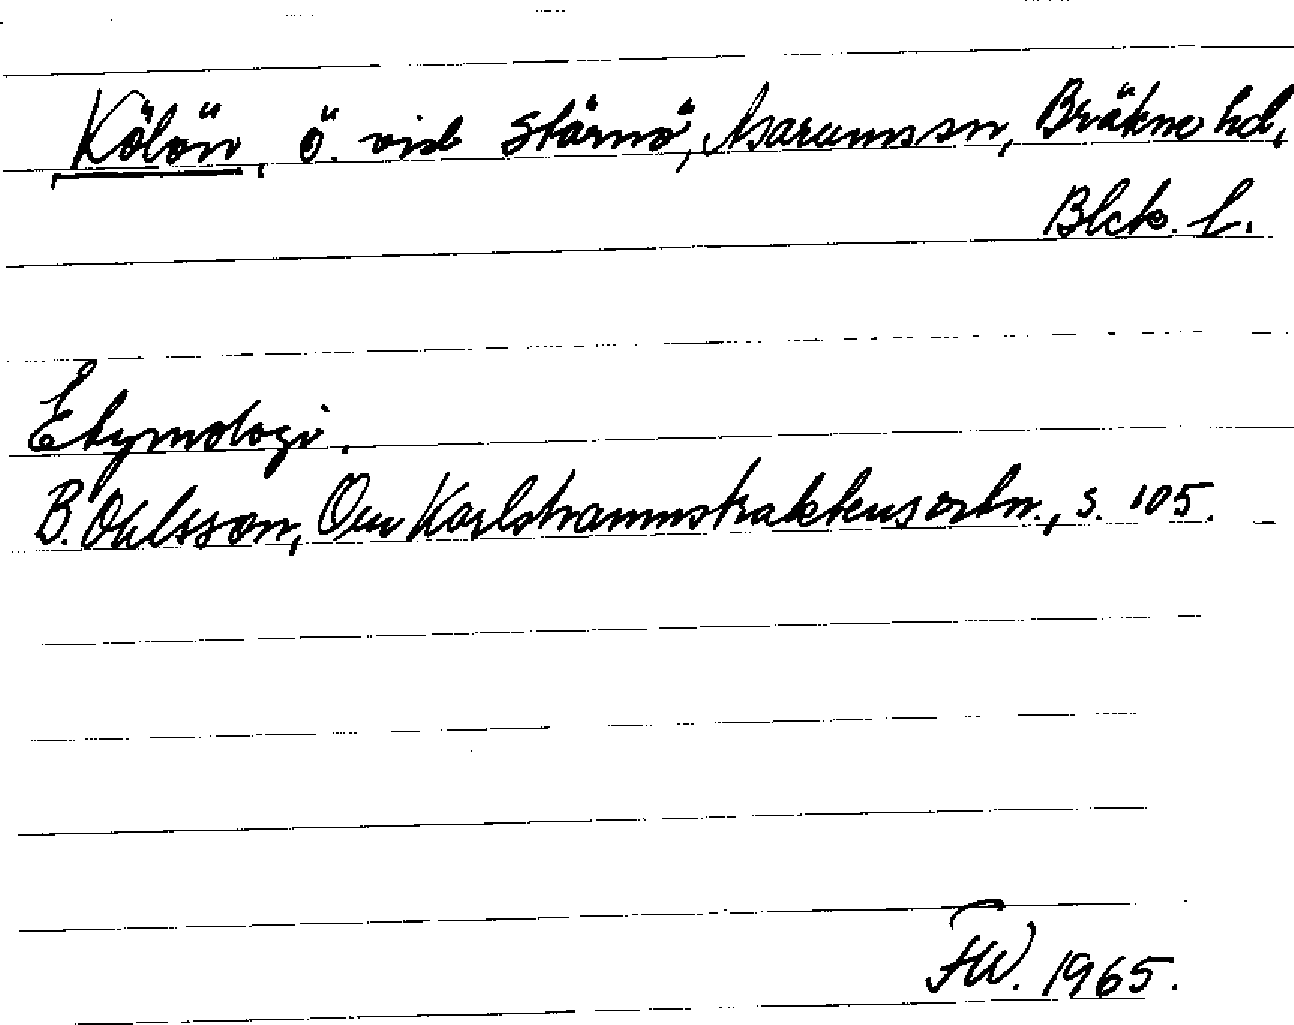 Kölön, ö. vid Stärnö, Asarums sn, Bräkne hd,
Blek. l.
Etymologi.
B. Ohlsson, Om Karlshamnstraktens ortn., s. 105.
FW. 1965.